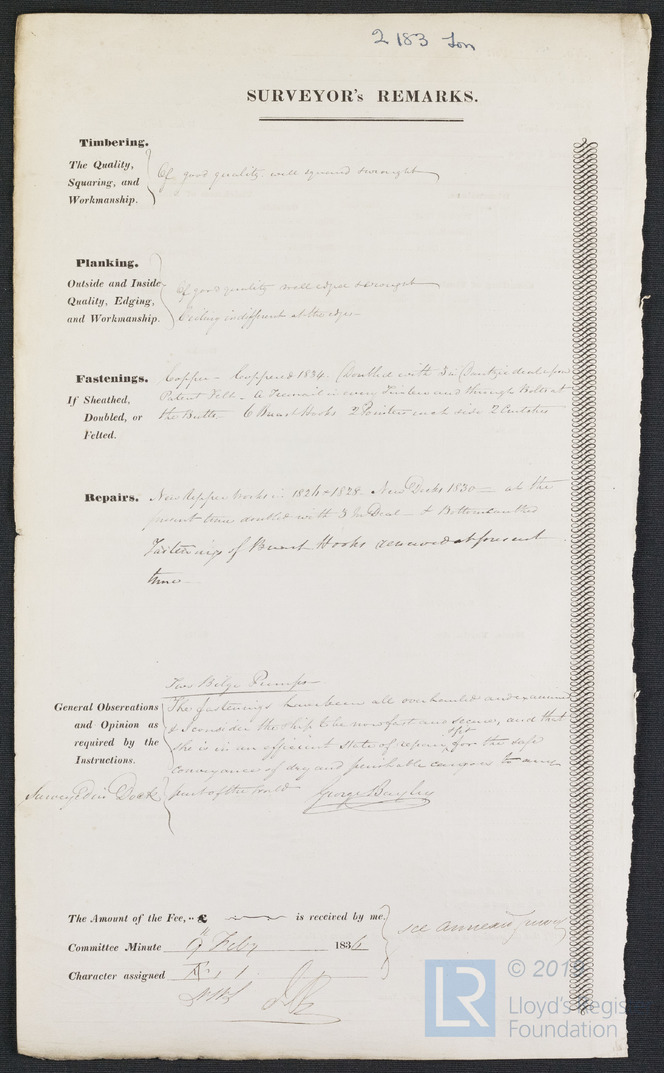 2183 Lon
SURVEYOR's REMARKS.
Timbering.
The Quality,
Squaring, and
Workmanship.
Of good quality well squared & wrought
Planking.
Outside and Inside
Quality, Edging,
and Workmanship.
Of good quality well edged & wrought
Ceiling indifferent at the edges
Fastenings.
If Sheathed,
Doubled, or
Felted.
Copper - Coppered 1834. Doubled with 3 in Dantzic deal upon
Patent Felt - A Treenail in every Timber and through Bolts at
the Butts 6 Breast Hooks 2 Pointers each side 2 Crutches
Repairs.
New Upper works in 1824 & 1828 New Decks 1830 = at the
present time doubled with 3 In Deal - & Bottom caulked
Fastenings of Breast Hooks renewed at present
time
General Observations
and Opinion as
required by the
Instructions.
Two Bilge Pumps
The fastenings have been all overhauled and examined
& I consider the Ship to be now fast and secure, and that
she is in an efficient state of repair & fit for the safe
conveyance of dry and perishable cargoes to any
part of the World
Surveyed in Dock
George Bayley
The Amount of the Fee, .. £ is received by me.
Committee Minute 9 Feby 1836
Character assigned Æ 1
see annexed
© 201
Lloyd's Regis
Foundation
LR